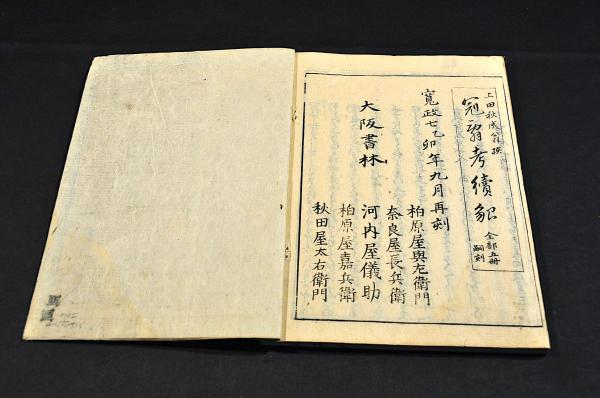 上田秋成翁撰
冠辞考續貂 全部五冊
嗣刻
寛政七乙卯年九月再刻
大阪書林
柏原屋與左衛門
奈良屋長兵衛
河内屋儀助
柏原屋嘉兵衛
秋田屋太右衛門